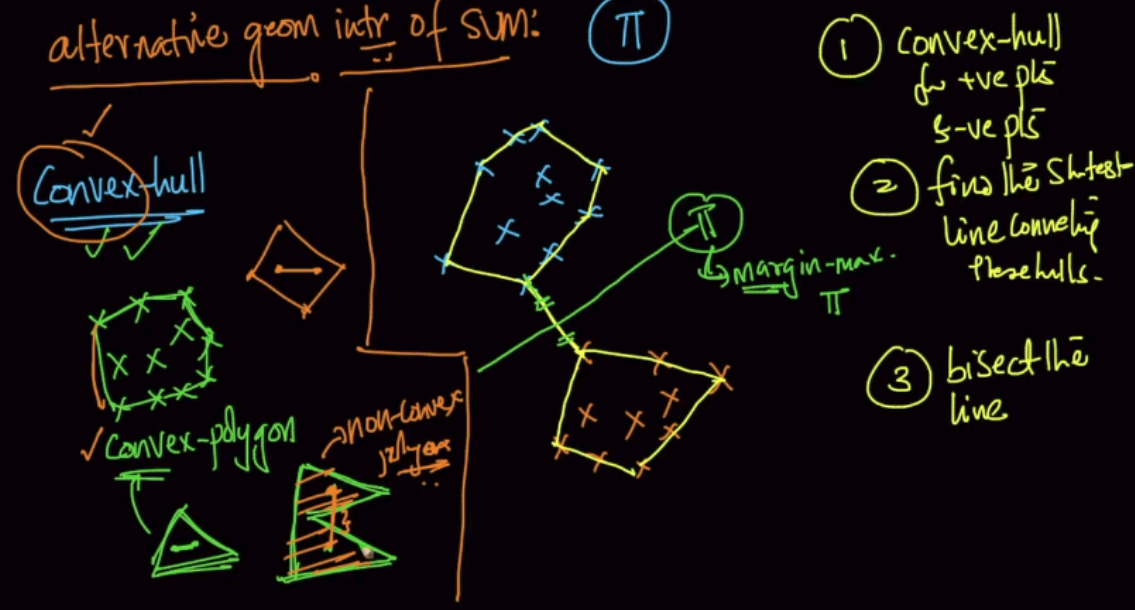 alternative geom intr of SVM:
π
Convex-hull
convex-polygon
non-convex
polygon
π
margin-max.
π
1 convex-hull
for +ve pts
& -ve pts
2 find the Shortest
line connecting
these hulls.
3 bisect the
line